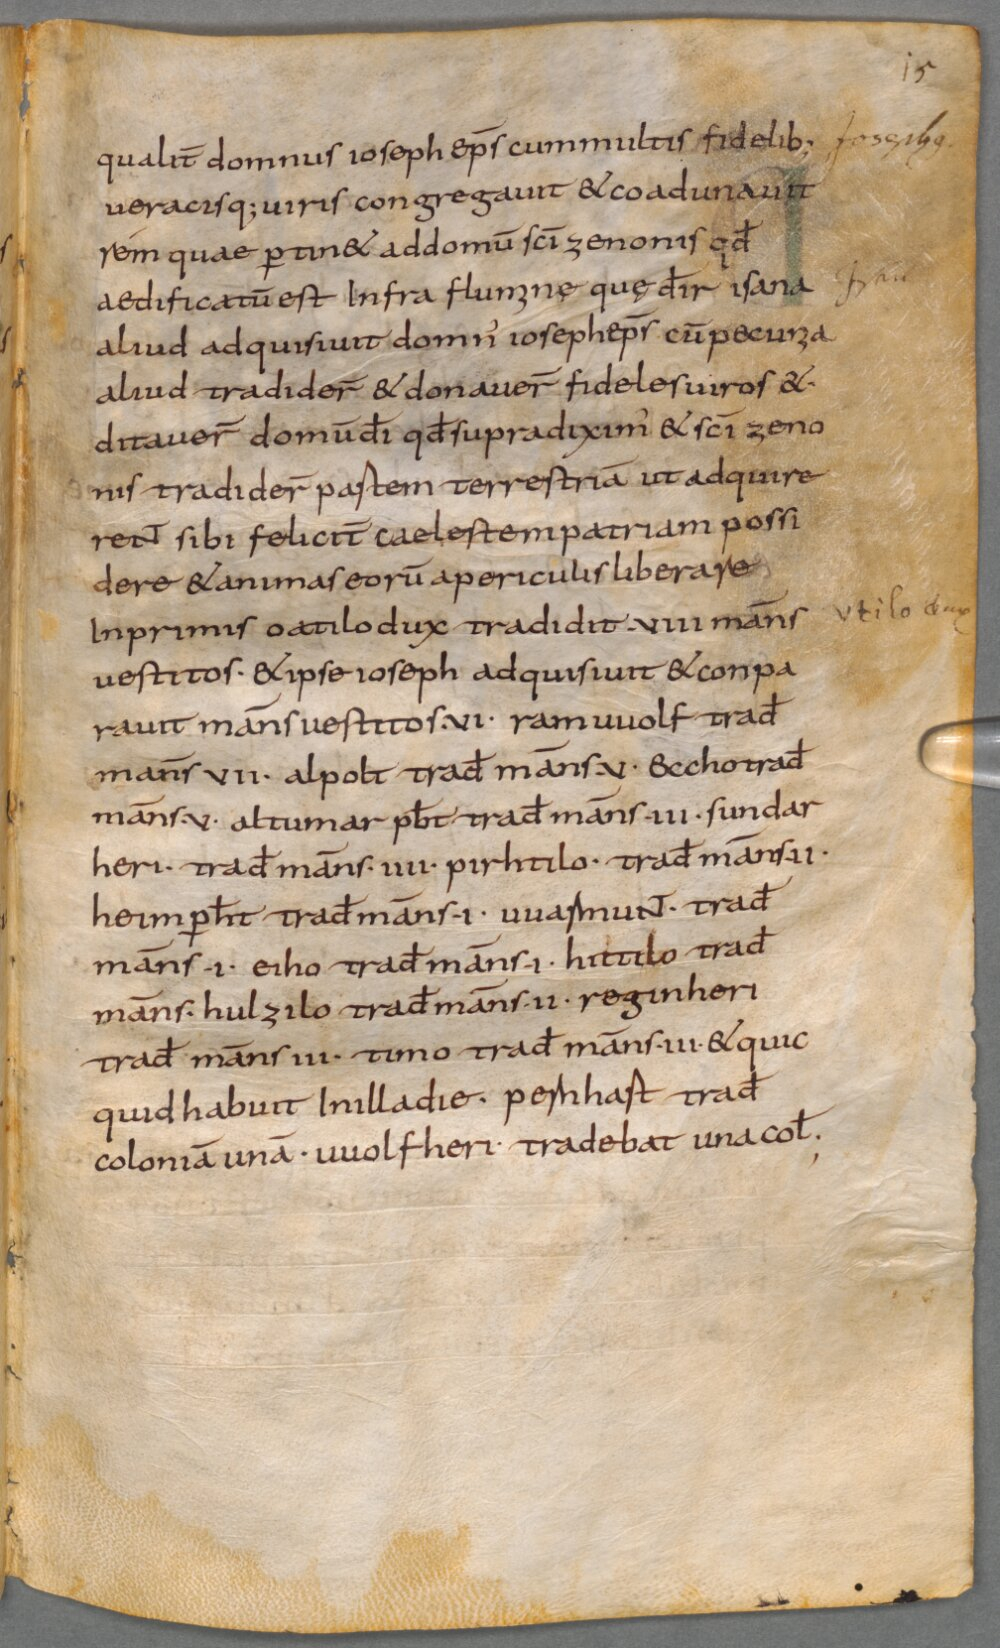 15
qualit̄ domnus ioseph ep̄s cum multis fidelib; Josephꝯ.
veracisq; uiris congregauit & coadunauit
rem quae ꝑtin& ad domū sc̄i zenonis qđ
aedificatū est Infra flumne quę dr̄ isana
aliud adquisiuit domn̄ ioseph ep̄s cū pecunia
aliud tradider̄ & donauer̄ fideles uiros &
ditauer̄ domū dī qđ supradixim̄ & sc̄i zeno
nis tradider̄ pastem terrestriā ut adquire
reNT sibi felicit̄ caelestem patriam possi
dere & animas eorū a periculis liberare
Inprimis oatilo dux tradidit ·VIII māns Vtilo dux
uestitos· & ipse ioseph adquisiuit & conpa
rauit māns uestitos·VI· ramuuolf trađ
māns VII· alpolt trađ māns·V· &ccho trađ
māns·V· altumar pƀt trađ māns·III· sundar
heri· trađ māns·IIII· pirhtilo· trađ māns·II·
heimꝑht trađ māns·I· uuasmuNT· trađ
māns·I· eiho trađ māns·I· hittilo trađ
māns· hulzilo trađ māns·II· reginheri
trađ māns III· timo trađ māns·III· & quic
quid habuit In illa die· petſhast trađ
coloniā unā· uuolfheri· tradebat una col̄·